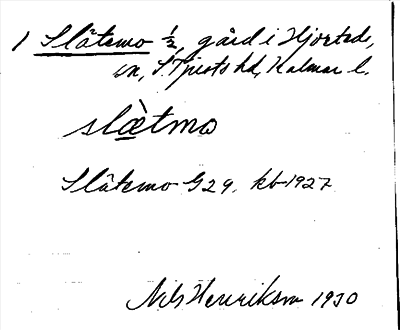 1 Slätemo ½, gård i Hjorteds,
sn, S. Tjusts hd, Kalmar l.
slæ̀tmo
Slätemo G 29. kb 1927
Nils Henrikson 1930